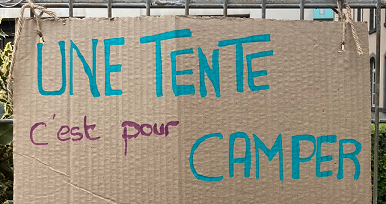 UNE TENTE
c'est pour
CAMPER